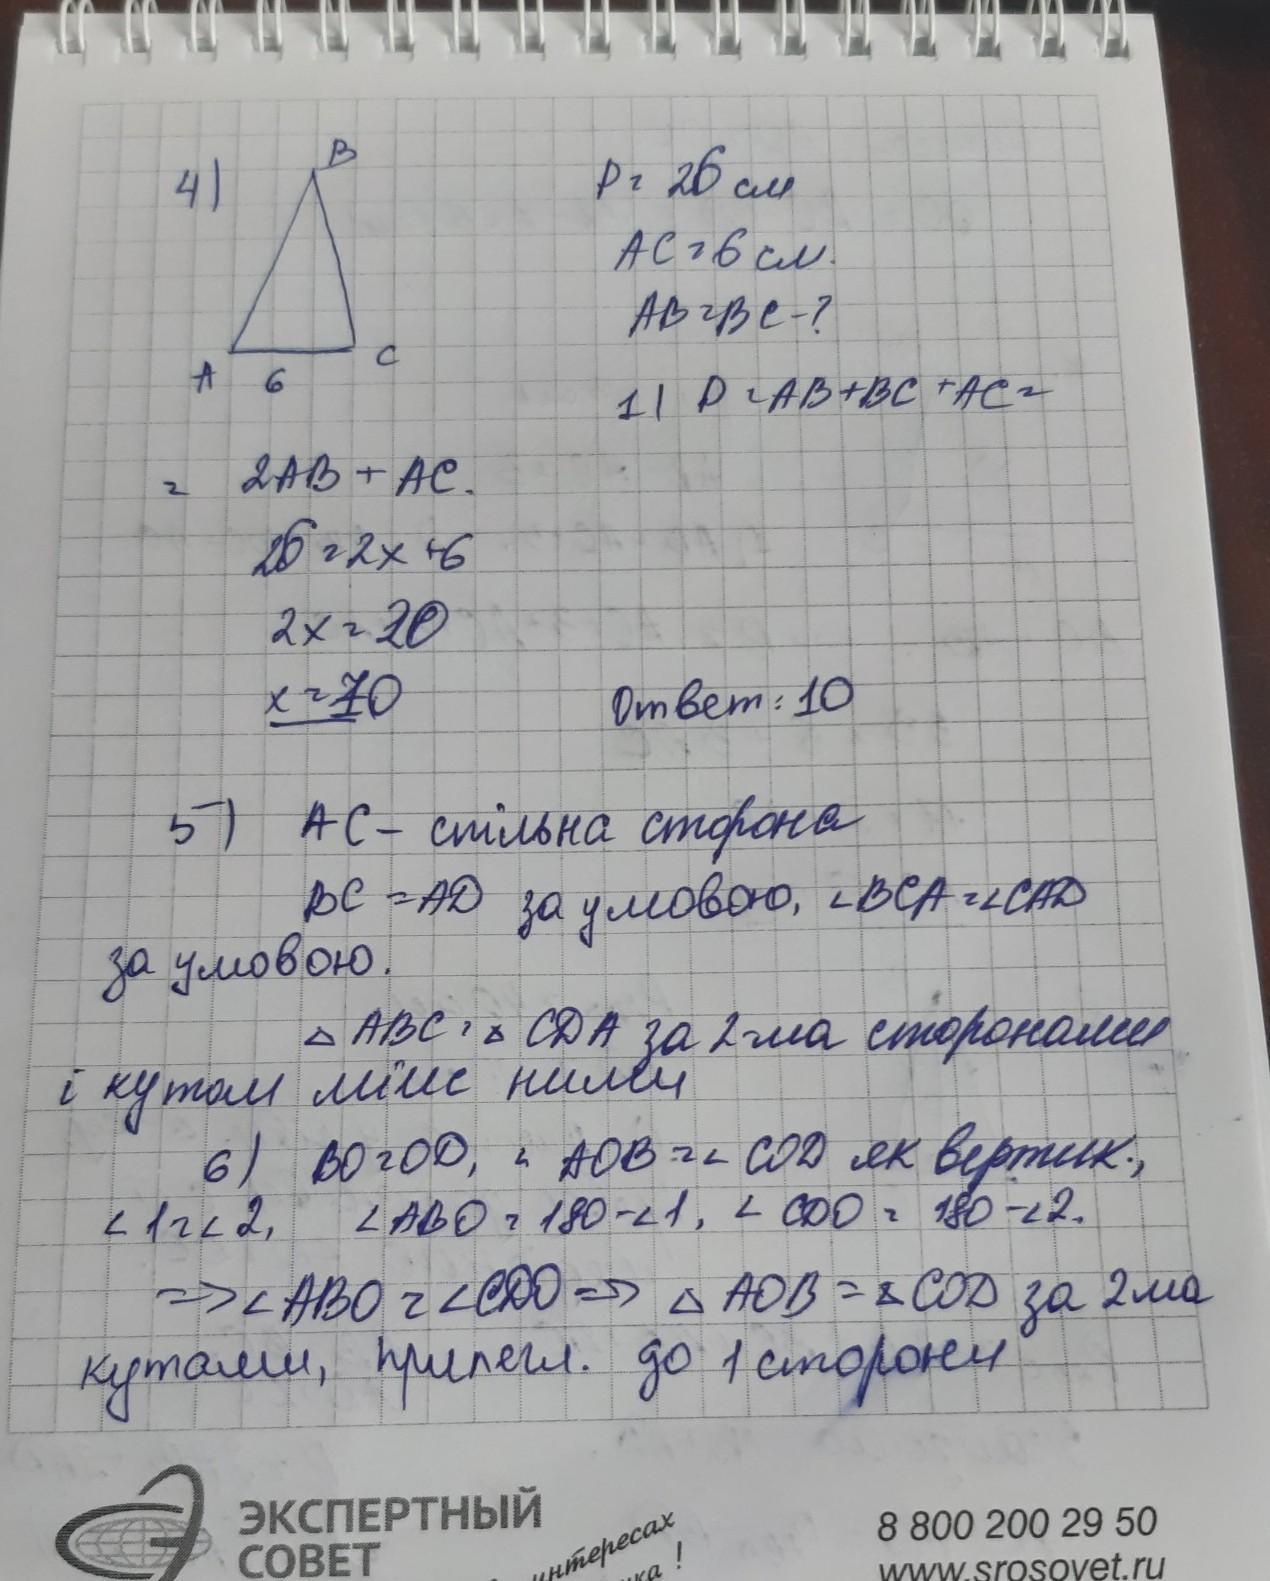 4)
B
A 6 C
P = 26 см
AC = 6 см.
AB = BC - ?
1) P = AB + BC + AC =
= 2AB + AC.
26 = 2x + 6
2x = 20
x = 10
Ответ: 10
5) AC - стільна сторона
BC = AD за умовою, ∠BCA = ∠CAD
за умовою.
△ ABC = △ CDA за 2-ма сторонами
і кутом між ними
6) BO = OD, ∠ AOB = ∠ COD як вертик.,
∠1 = ∠2, ∠ABO = 180 - ∠1, ∠ CDO = 180 - ∠2.
=> ∠ABO = ∠CDO => △ AOB = △ COD за 2ма
кутами, прилегл. до 1 сторони
ЭКСПЕРТНЫЙ
СОВЕТ
интересах
8 800 200 29 50
www.srosovet.ru